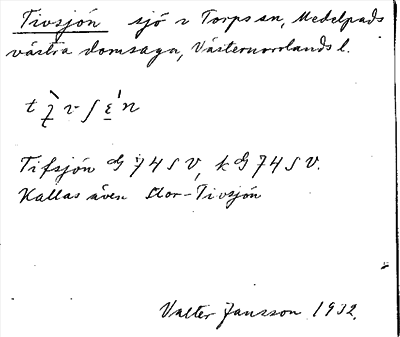 Tivsjön sjö i Torps sn, Medelpads
västra domsaga, Västernorrlands l.
Tifsjön G 74 S V, k G 74 S V.
Kallas även Stor-Tivsjön
Valter Jansson 1932.